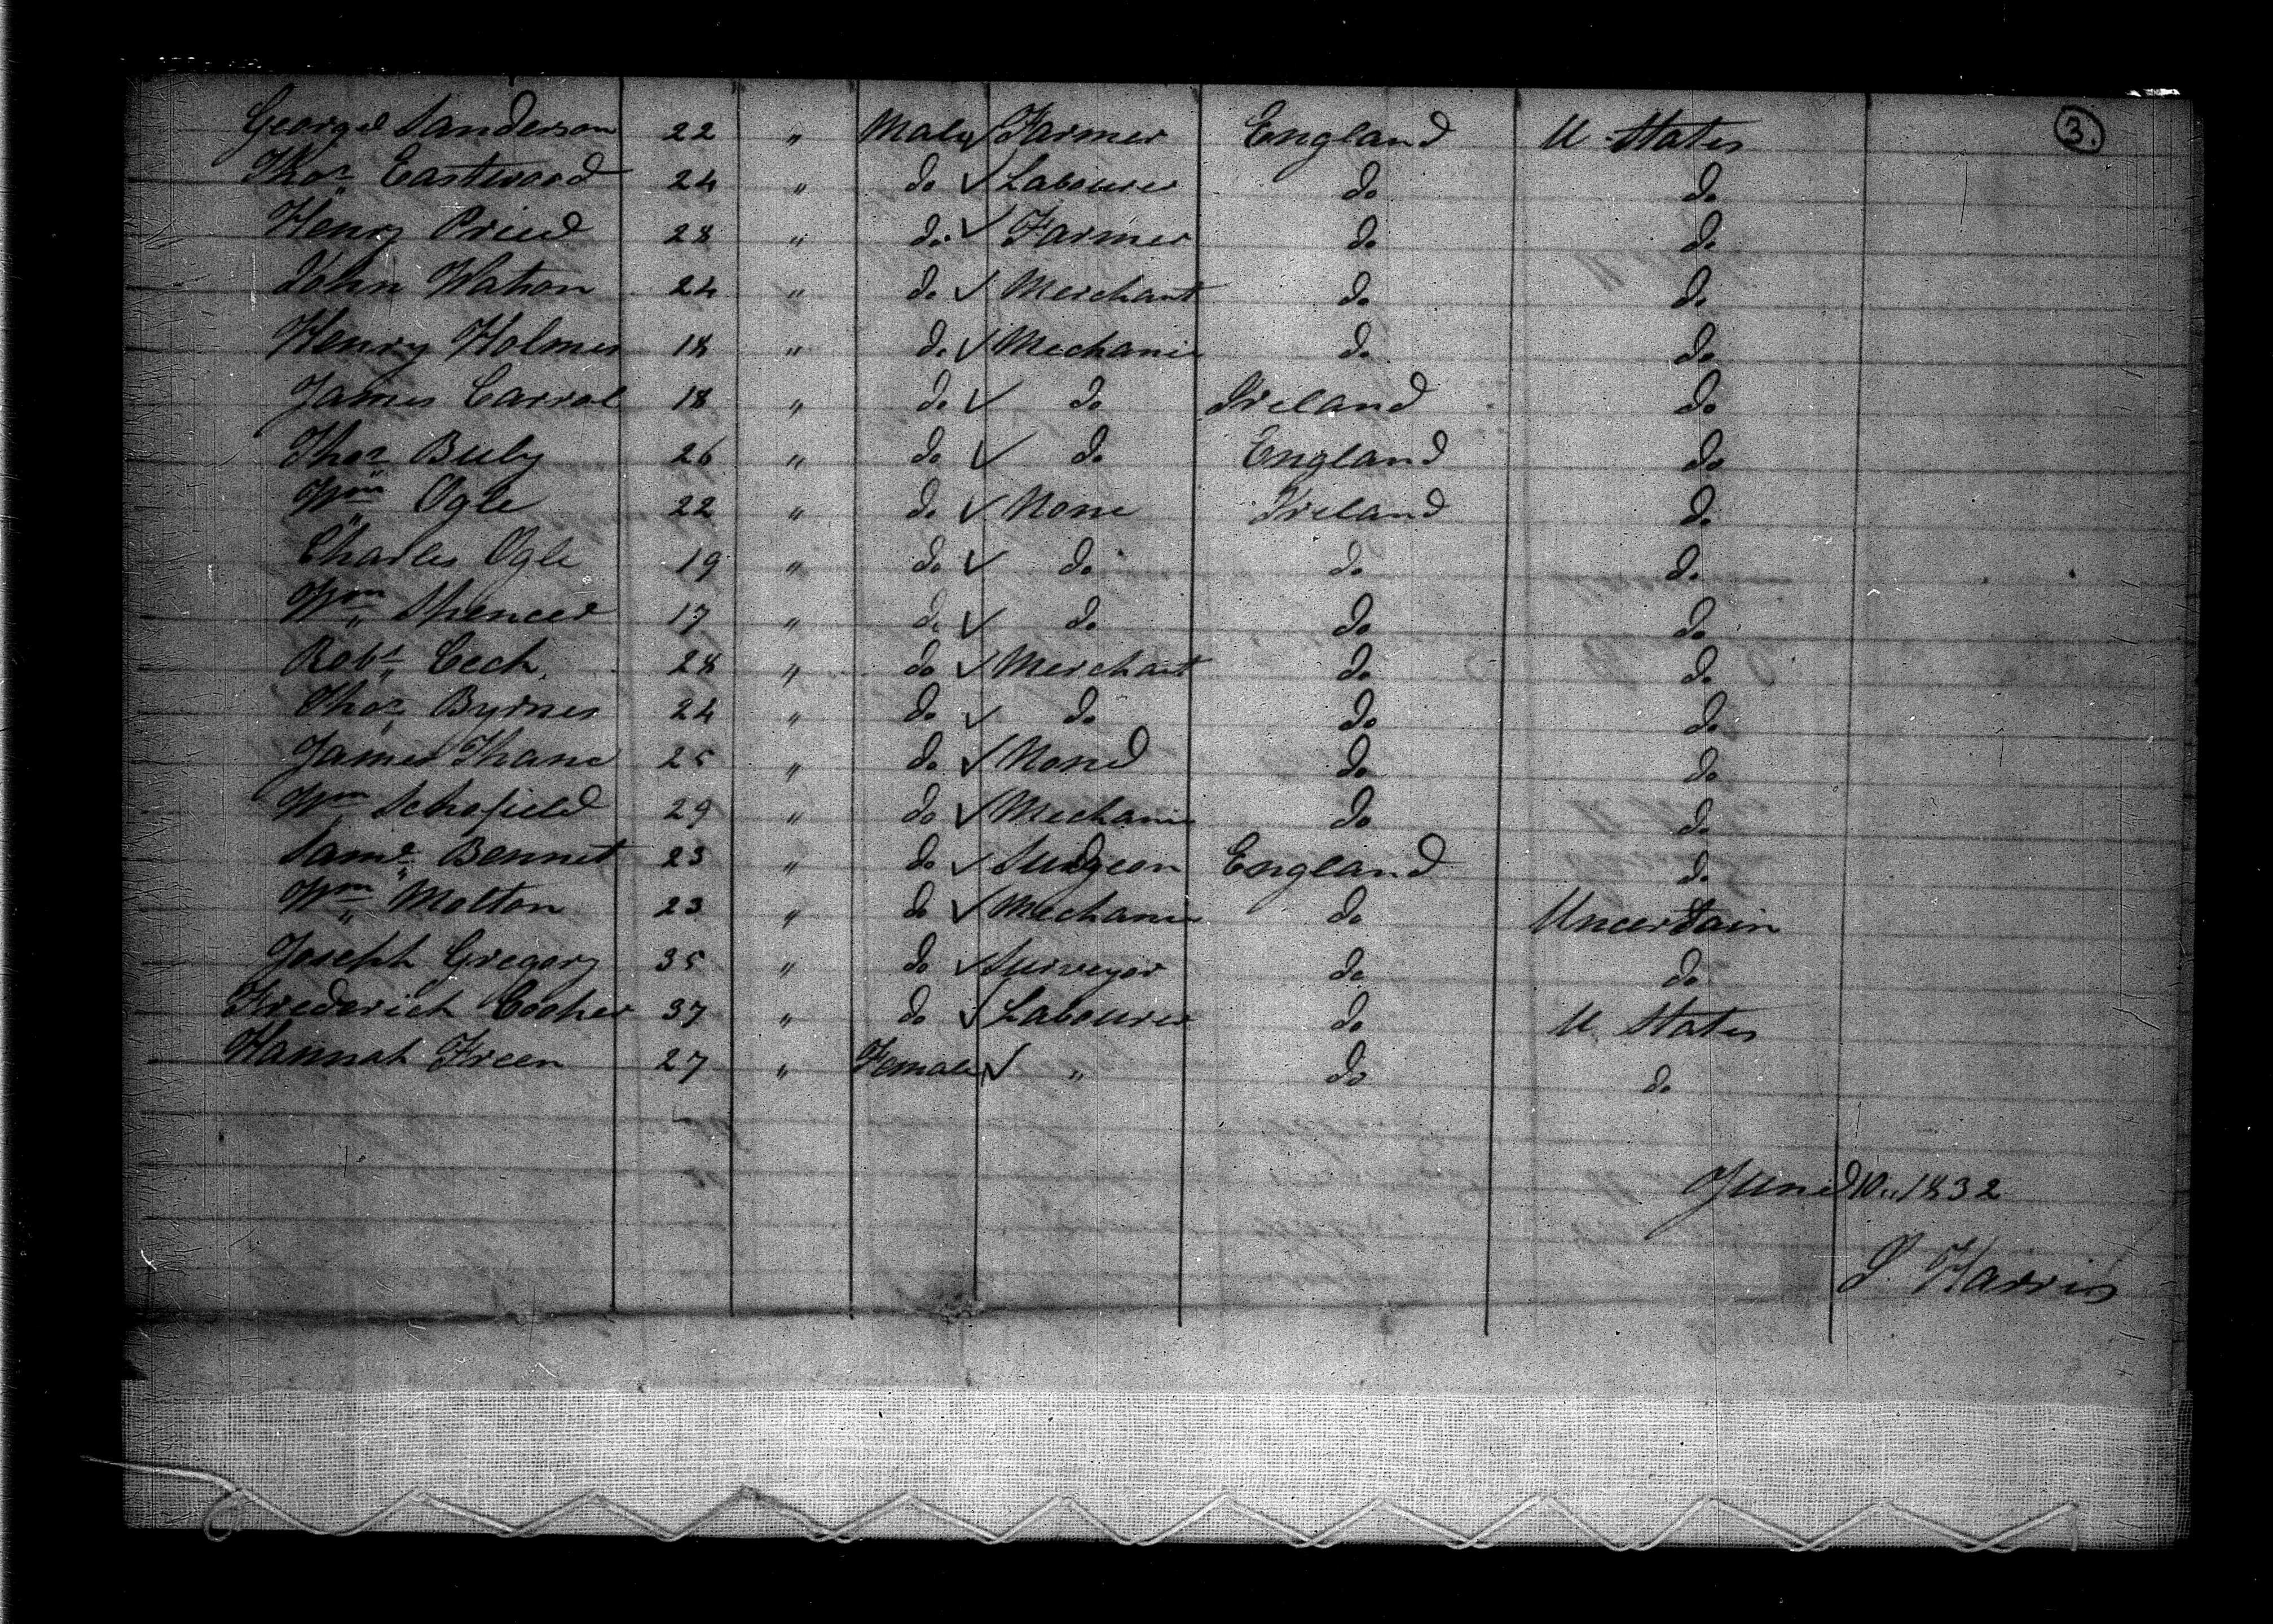 3.
George Sanderson 22 " Male ✓ Farmer England U States
Thos Eastwood 24 " do ✓ Labourer do do
Henry Price 28 " do ✓ Farmer do do
John Watson 24 " do ✓ Merchant do do
Henry Holmes 18 " do ✓ Mechanic do do
James Carrol 18 " do ✓ do Ireland do
Thos Buly 26 " do ✓ do England do
Wm Ogle 22 " do ✓ None Ireland do
Charles Ogle 19 " do ✓ do do do
Wm Spencer 17 " do ✓ do do do
Robt 28 " do ✓ Merchant do do
Thos Byrnes 24 " do ✓ do do do
James Thane 25 " do ✓ None do do
Wm Schofield 29 " do ✓ Mechanic do do
Saml Bennet 23 " do ✓ Surgeon England do
Wm Molton 23 " do ✓ Mechanic do Uncertain
Joseph Gregory 35 " do ✓ Surveyor do do
Frederick 37 " do ✓ Labourer do U. States
Hannah Freen 27 " Female ✓ " do do
June 10 " 1832
S. Harris